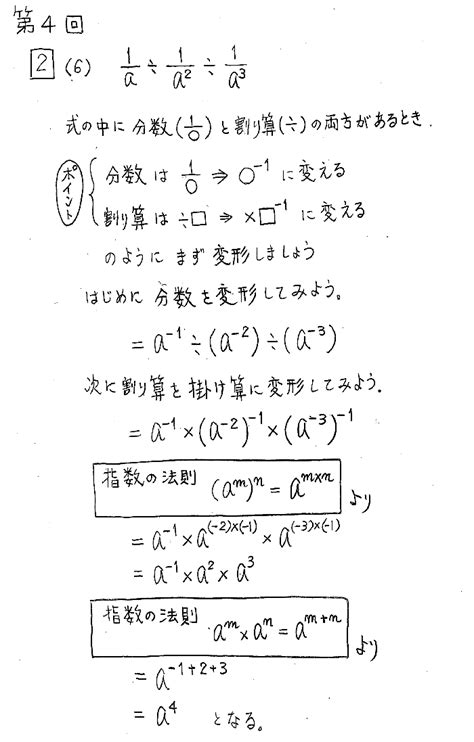 第4回
2 (6) 1/a ÷ 1/a² ÷ 1/a³
式の中に分数(1/○)と割り算(÷)の両方があるとき.
ポイント
分数は 1/○ ⇒ ○⁻¹ に変える
割り算は ÷□ ⇒ ×□⁻¹ に変える
のように まず変形しましょう
はじめに分数を変形してみよう。
= a⁻¹ ÷ (a⁻²) ÷ (a⁻³)
次に割り算を掛け算に変形してみよう.
= a⁻¹ × (a⁻²)⁻¹ × (a⁻³)⁻¹
指数の法則 (aᵐ)ⁿ = aᵐˣⁿ より
= a⁻¹ × a^(-2)×(-1) × a^(-3)×(-1)
= a⁻¹ × a² × a³
指数の法則 aᵐ × aⁿ = aᵐ⁺ⁿ より
= a⁻¹⁺²⁺³
= a⁴ となる。